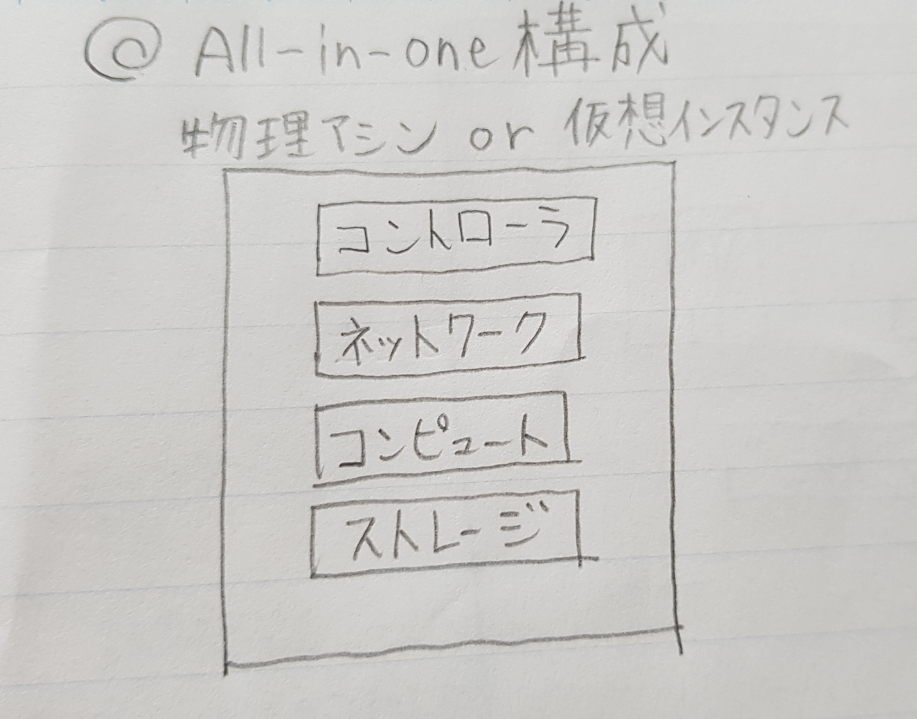 @ All-in-one 構成
物理マシン or 仮想インスタンス
コントローラ
ネットワーク
コンピュート
ストレージ